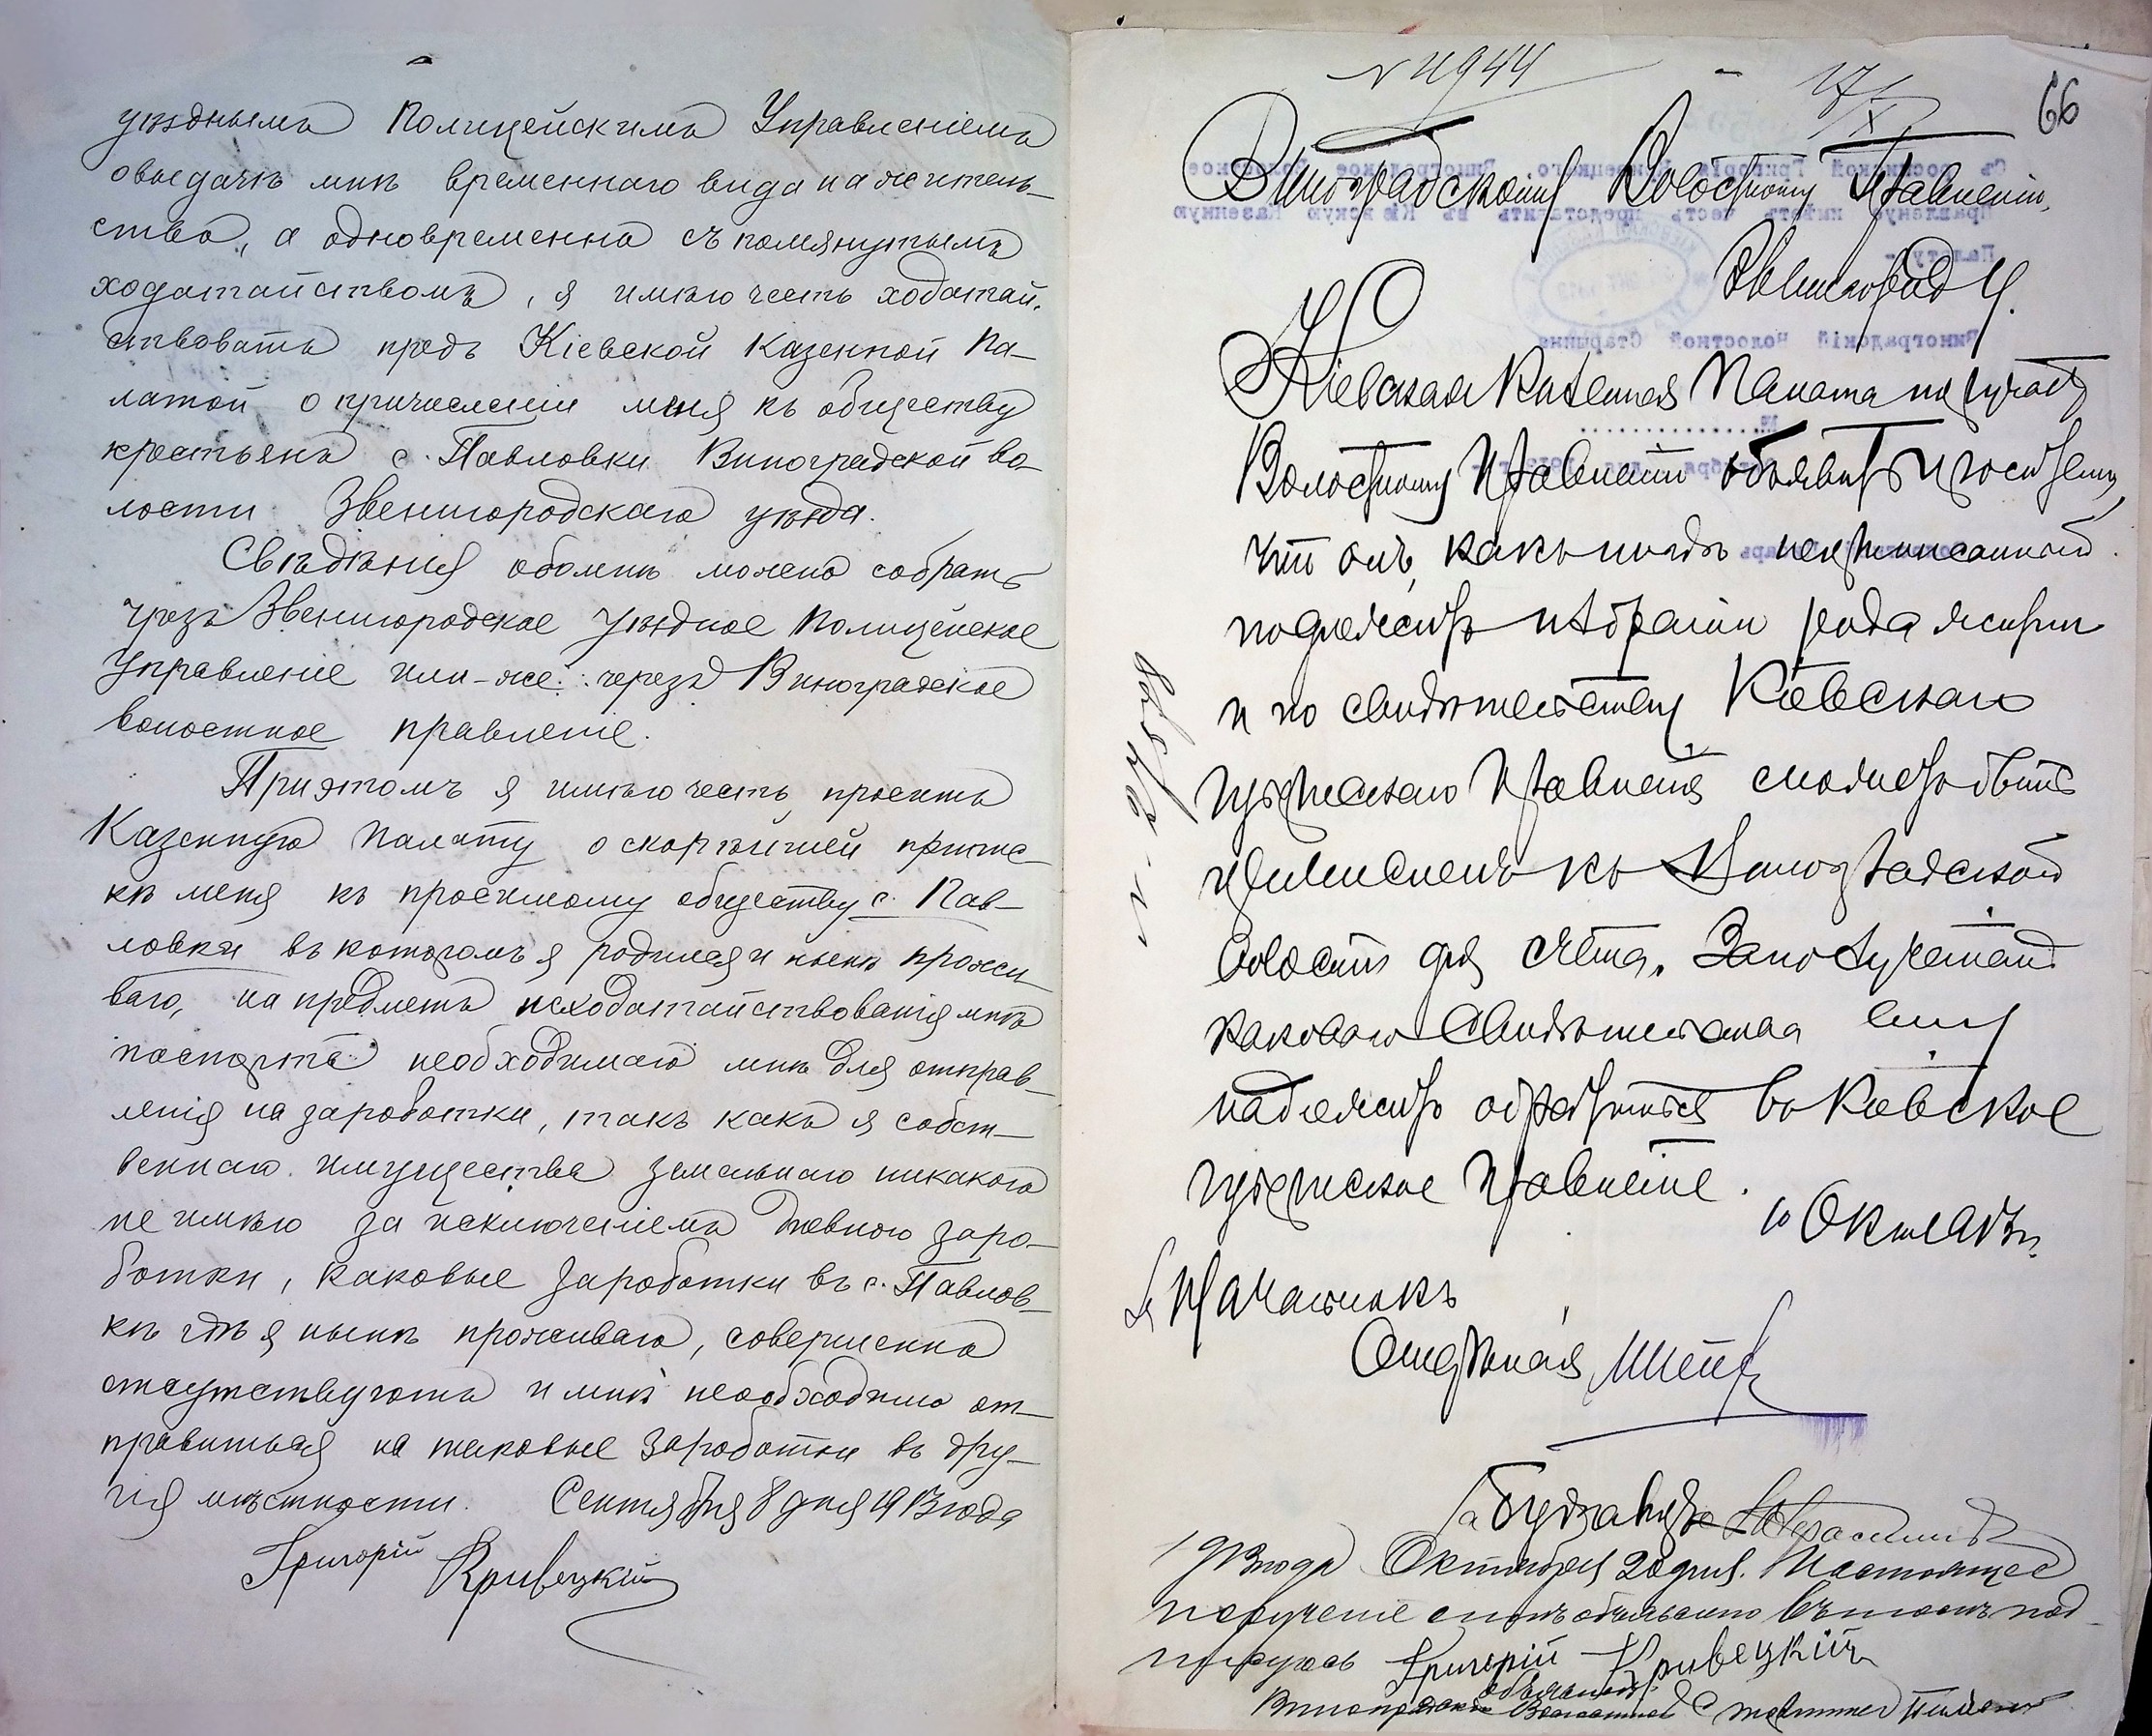 уѣзднымъ Полицейскимъ Управленіемъ
овыдачѣ мнѣ временнаго вида на житель-
ство, а одновременно съ помянутымъ
ходатайствомъ, я имѣю честь ходатай-
ствовать предъ Кіевской Казенной Па-
латой о причисленіи меня къ обществу
крестьянъ с. Павловки Виноградской во-
лости Звенигородскаго уѣзда.
Свѣдѣнія обомнѣ можно собрать
чрезъ Звенигородское Уѣздное Полицейское
Управленіе или-же черезъ Виноградское
волостное правленіе.
Приэтомъ я имѣю честь просить
Казенную Палату о скорѣйшей припис-
кѣ меня къ просимому обществу с. Пав-
ловки въ которомъ я родился и нынѣ прожи-
ваю, на предметъ исходатайствованія мнѣ
паспорта необходимаго мнѣ для отправ-
ленія на зароботки, такъ какъ я собст-
веннаго имущества земельнаго никакого
не имѣю за исключеніемъ дневного заро-
ботки, каковые зароботки въ с. Павлов-
кѣ гдѣ я нынѣ проживаю, совершенно
отсутствуютъ и мнѣ необходимо от-
правиться на таковые зароботки въ дру-
гія мѣстности. Сентября 8 дня 1913 года
Григорій Кривецкій
N 4944 17/X 66
Виноградскому Волостному Правленію,
Звенигород у.
Кіевская Казенная Палата поручаетъ
Волостному Правленію объявить просителю,
что онъ, какъ неприписанный
подлежитъ избранію рода жизни
и по свидѣтельству Кіевскаго
Губернскаго Правленія сможетъ быть
причисленъ къ Виноградской
волости для счета. Заполученіемъ
каковаго свидѣтельства ему
надлежитъ обратиться въ Кіевское
Губернское Правленіе.
10 Октября
Начальникъ
Отдѣленія
1913 года Октября 20 дня. Настоящее
порученіе мнѣ объявлено въ томъ под-
писуюсь Григорій Кривецкій
объявилъ
Виноградскій Волостной Старшина